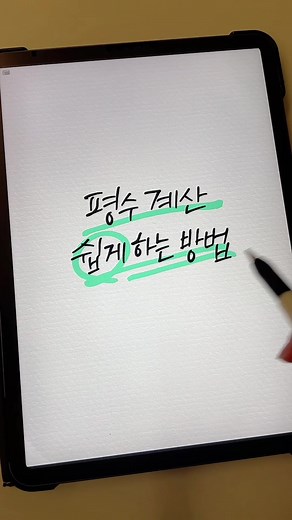 평수 계산
쉽게 하는 방법